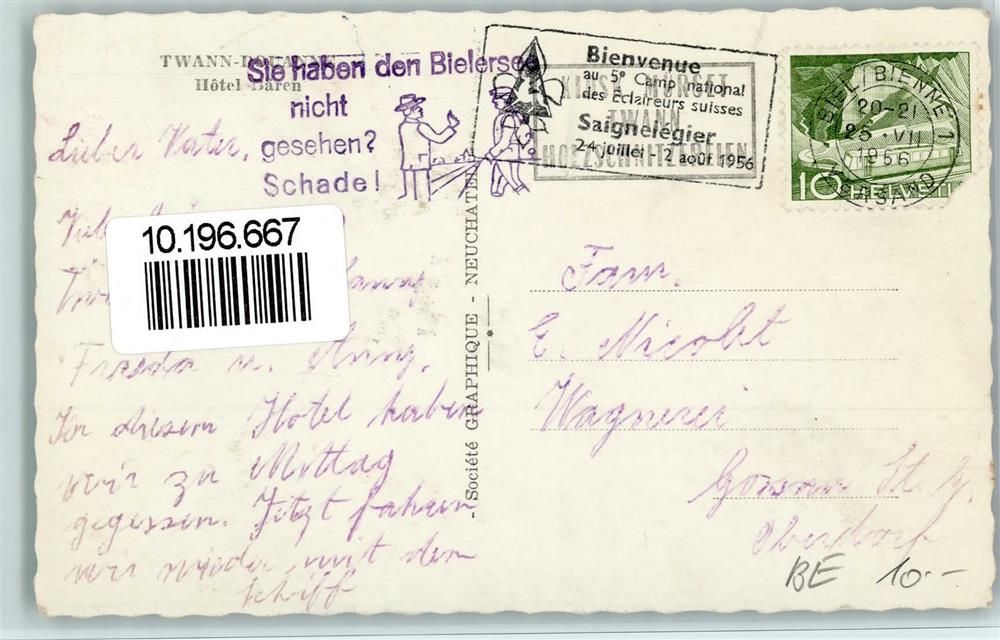 TWANN-DOUANNE
Hôtel Bären
Sie haben den Bielersee
nicht
gesehen?
Schade!
Bienvenue
au 5e Camp national
des Eclaireurs suisses
Saignelégier
24 juillet 2 août 1956
TWANN
HOLZSCHNITZEREIEN
BIEL (BIENNE) 1
20-21
25.VII
1956
10 HELVETIA
Lieber Vater,
10.196.667
Frieda u. Anny.
In diesem Hotel haben
wir zu Mittag
gegessen. Jetzt fahren
wir wieder mit dem
Schiff
Société GRAPHIQUE - NEUCHATEL
Fam.
E. Nicolet
Wagnerei
Gossau St. G.
Oberdorf
BE 10.-